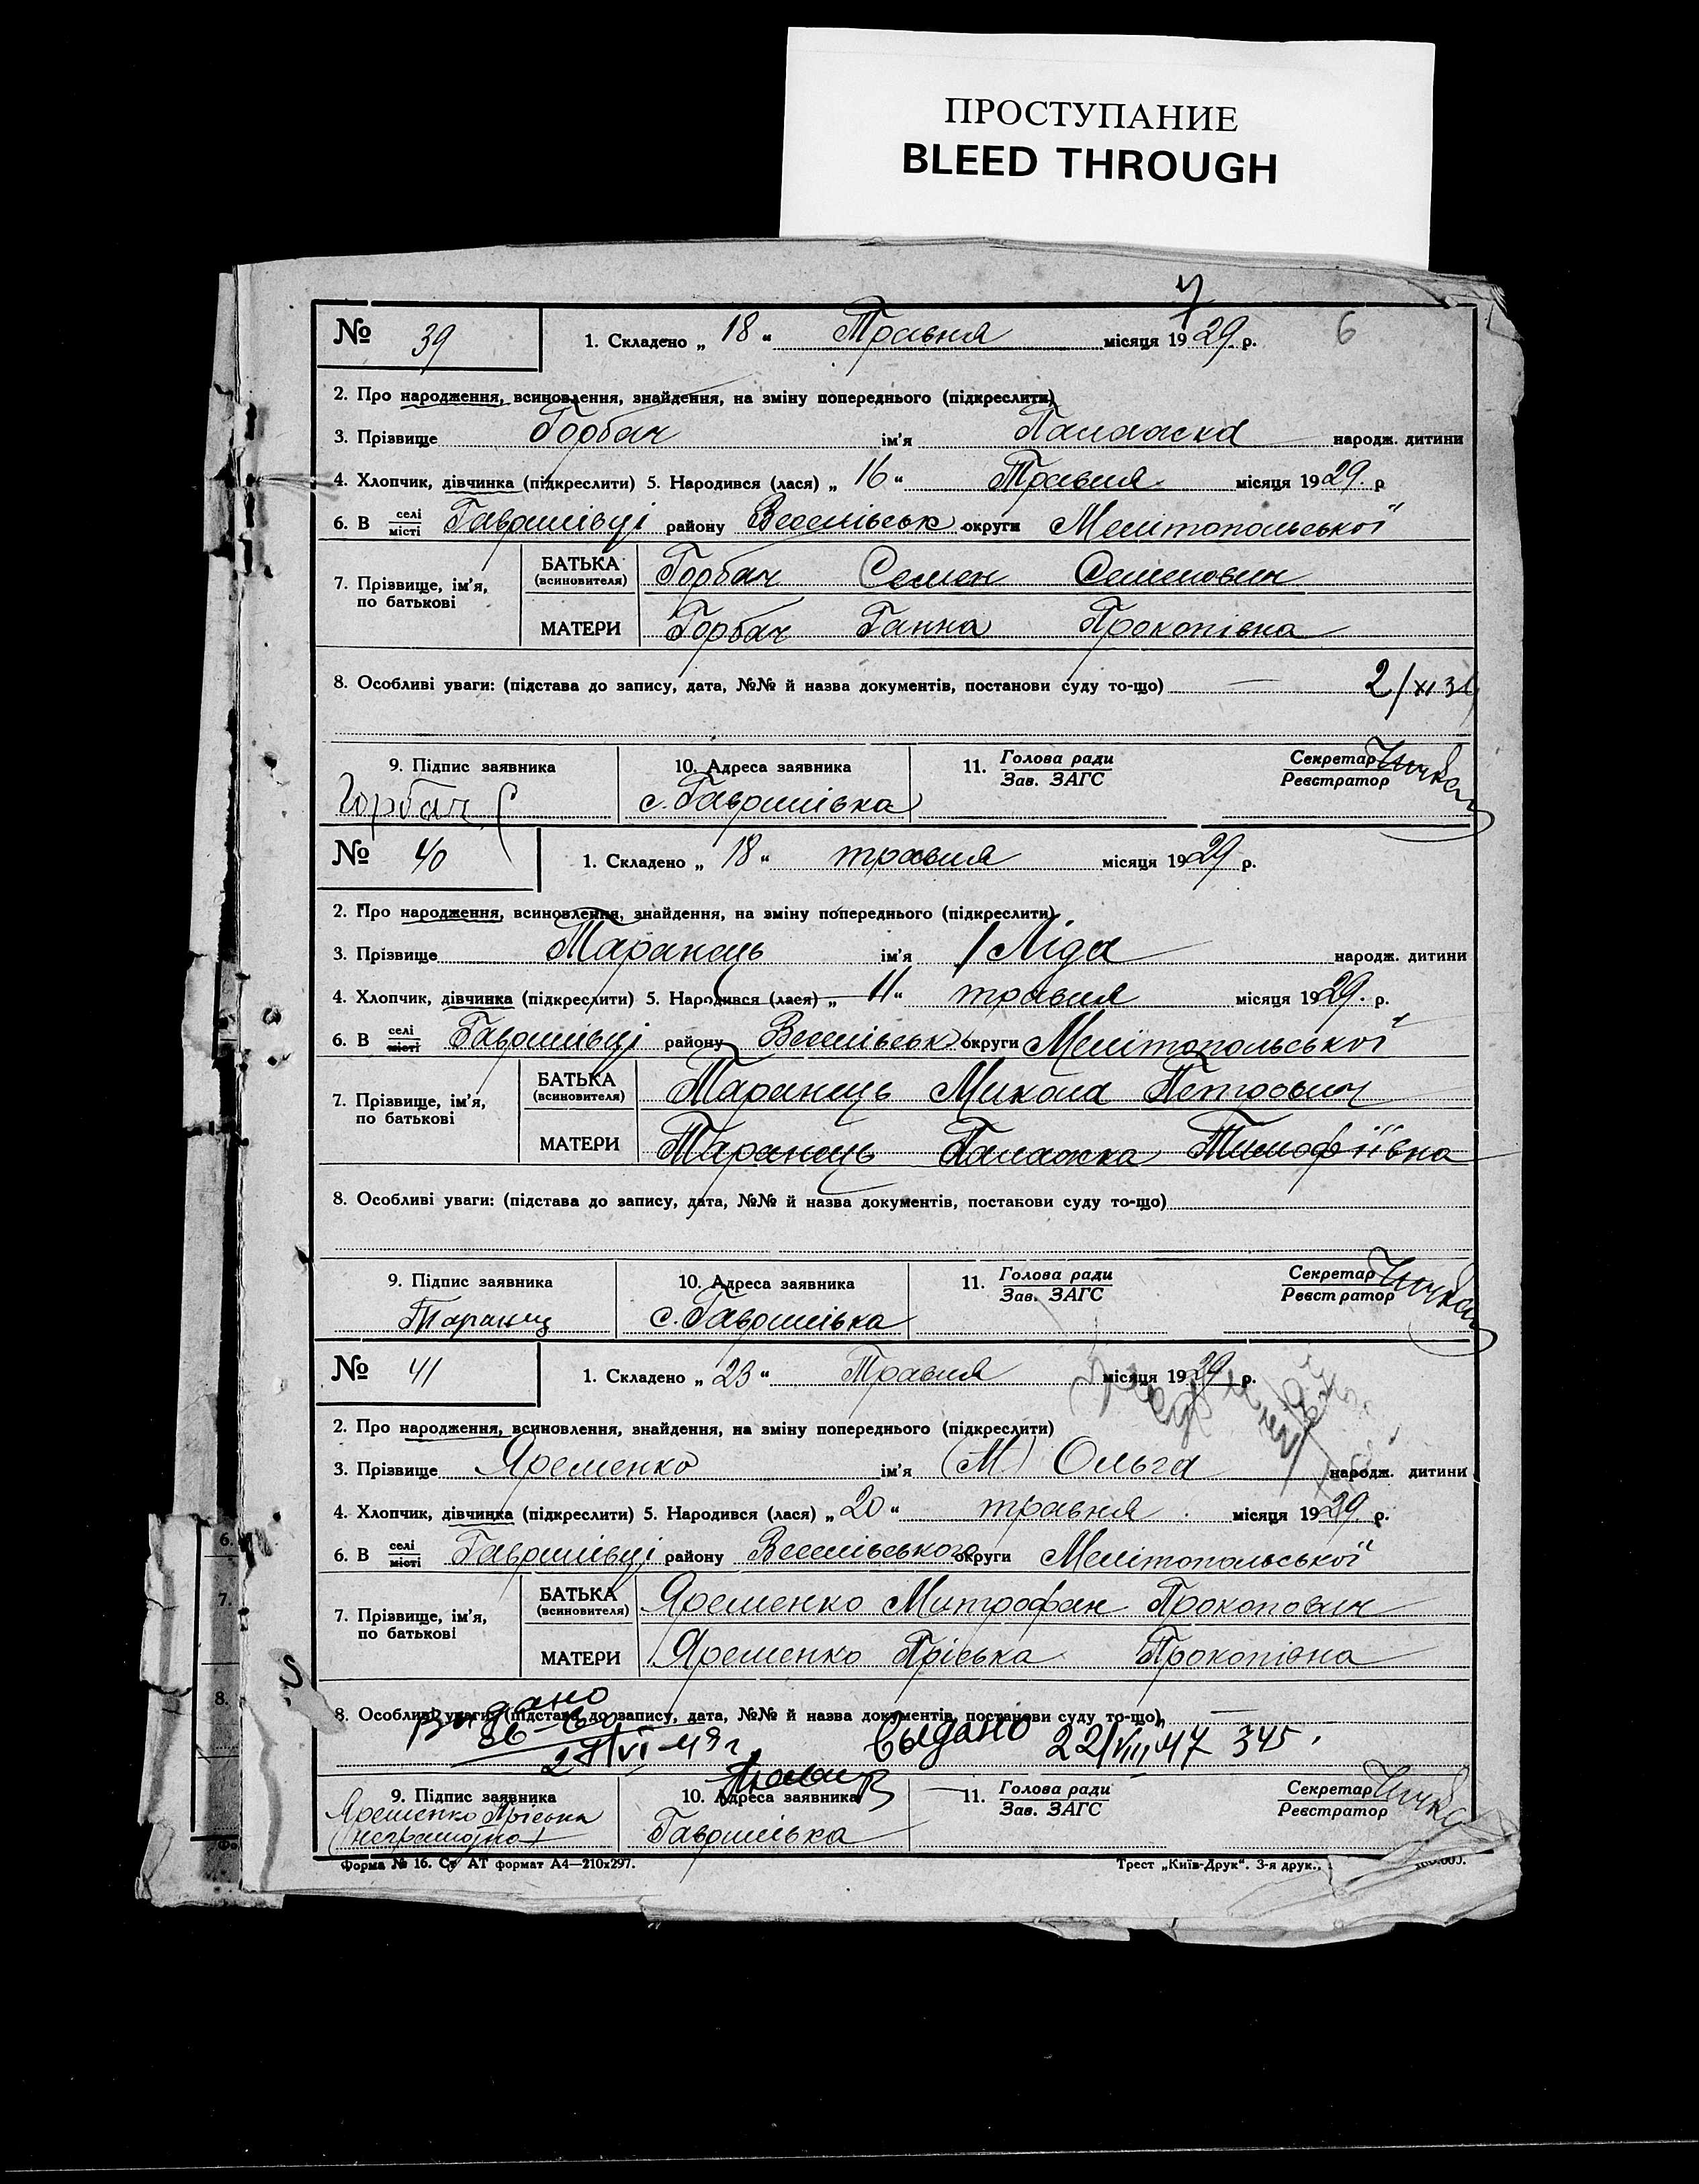 ПРОСТУПАНИЕ
BLEED THROUGH
№ 39 1. Складено „ 18 “ Травня місяця 1929 р. 6
2. Про народження, всиновлення, знайдення, на зміну попереднього (підкреслити)
3. Прізвище Горбач ім'я Палажка народж. дитини
4. Хлопчик, дівчинка (підкреслити) 5. Народився (лася) „ 16 “ Травня місяця 1929. р
6. В селі місті Гаврилівці району Веселівськ округи Мелітопольської
7. Прізвище, ім'я, по батькові
БАТЬКА (всиновителя) Горбач Семен Семенович
МАТЕРИ Горбач Ганна Прокопівна
8. Особливі уваги: (підстава до запису, дата, №№ й назва документів, постанови суду то-що) 2/XI 34
9. Підпис заявника 10. Адреса заявника 11. Голова ради Зав. ЗАГС Секретар Реєстратор
Горбач С с. Гаврилівка
№ 40 1. Складено „ 18 “ травня місяця 1929 р.
2. Про народження, всиновлення, знайдення, на зміну попереднього (підкреслити)
3. Прізвище Таранець ім'я Ліда народж. дитини
4. Хлопчик, дівчинка (підкреслити) 5. Народився (лася) „ 11 “ травня місяця 1929. р.
6. В селі місті Гаврилівці району Веселівськ округи Мелітопольської
7. Прізвище, ім'я, по батькові
БАТЬКА (всиновителя) Таранець Микола Петрович
МАТЕРИ Таранець Палажка Тимофіївна
8. Особливі уваги: (підстава до запису, дата, №№ й назва документів, постанови суду то-що)
9. Підпис заявника 10. Адреса заявника 11. Голова ради Зав. ЗАГС Секретар Реєстратор
Таранец с. Гаврилівка
№ 41 1. Складено „ 23 “ Травня місяця 1929 р.
2. Про народження, всиновлення, знайдення, на зміну попереднього (підкреслити)
3. Прізвище Яременко ім'я (М) Ольга народж. дитини
4. Хлопчик, дівчинка (підкреслити) 5. Народився (лася) „ 20 “ травня місяця 1929 р.
6. В селі місті Гаврилівці району Веселівського округи Мелітопольської
7. Прізвище, ім'я, по батькові
БАТЬКА (всиновителя) Яременко Митрофан Прокопович
МАТЕРИ Яременко Пріська Прокопівна
8. Особливі уваги: (підстава до запису, дата, №№ й назва документів, постанови суду то-що)
Видано
Выдано 22/VIII 47 345.
9. Підпис заявника 10. Адреса заявника 11. Голова ради Зав. ЗАГС Секретар Реєстратор
Яременко Пріська
(неграмотна) Гаврилівка
Форма № 16. Ст АТ формат А4—210x297. Трест „Київ-Друк“. 3-я друк.,
6.
7.
8.